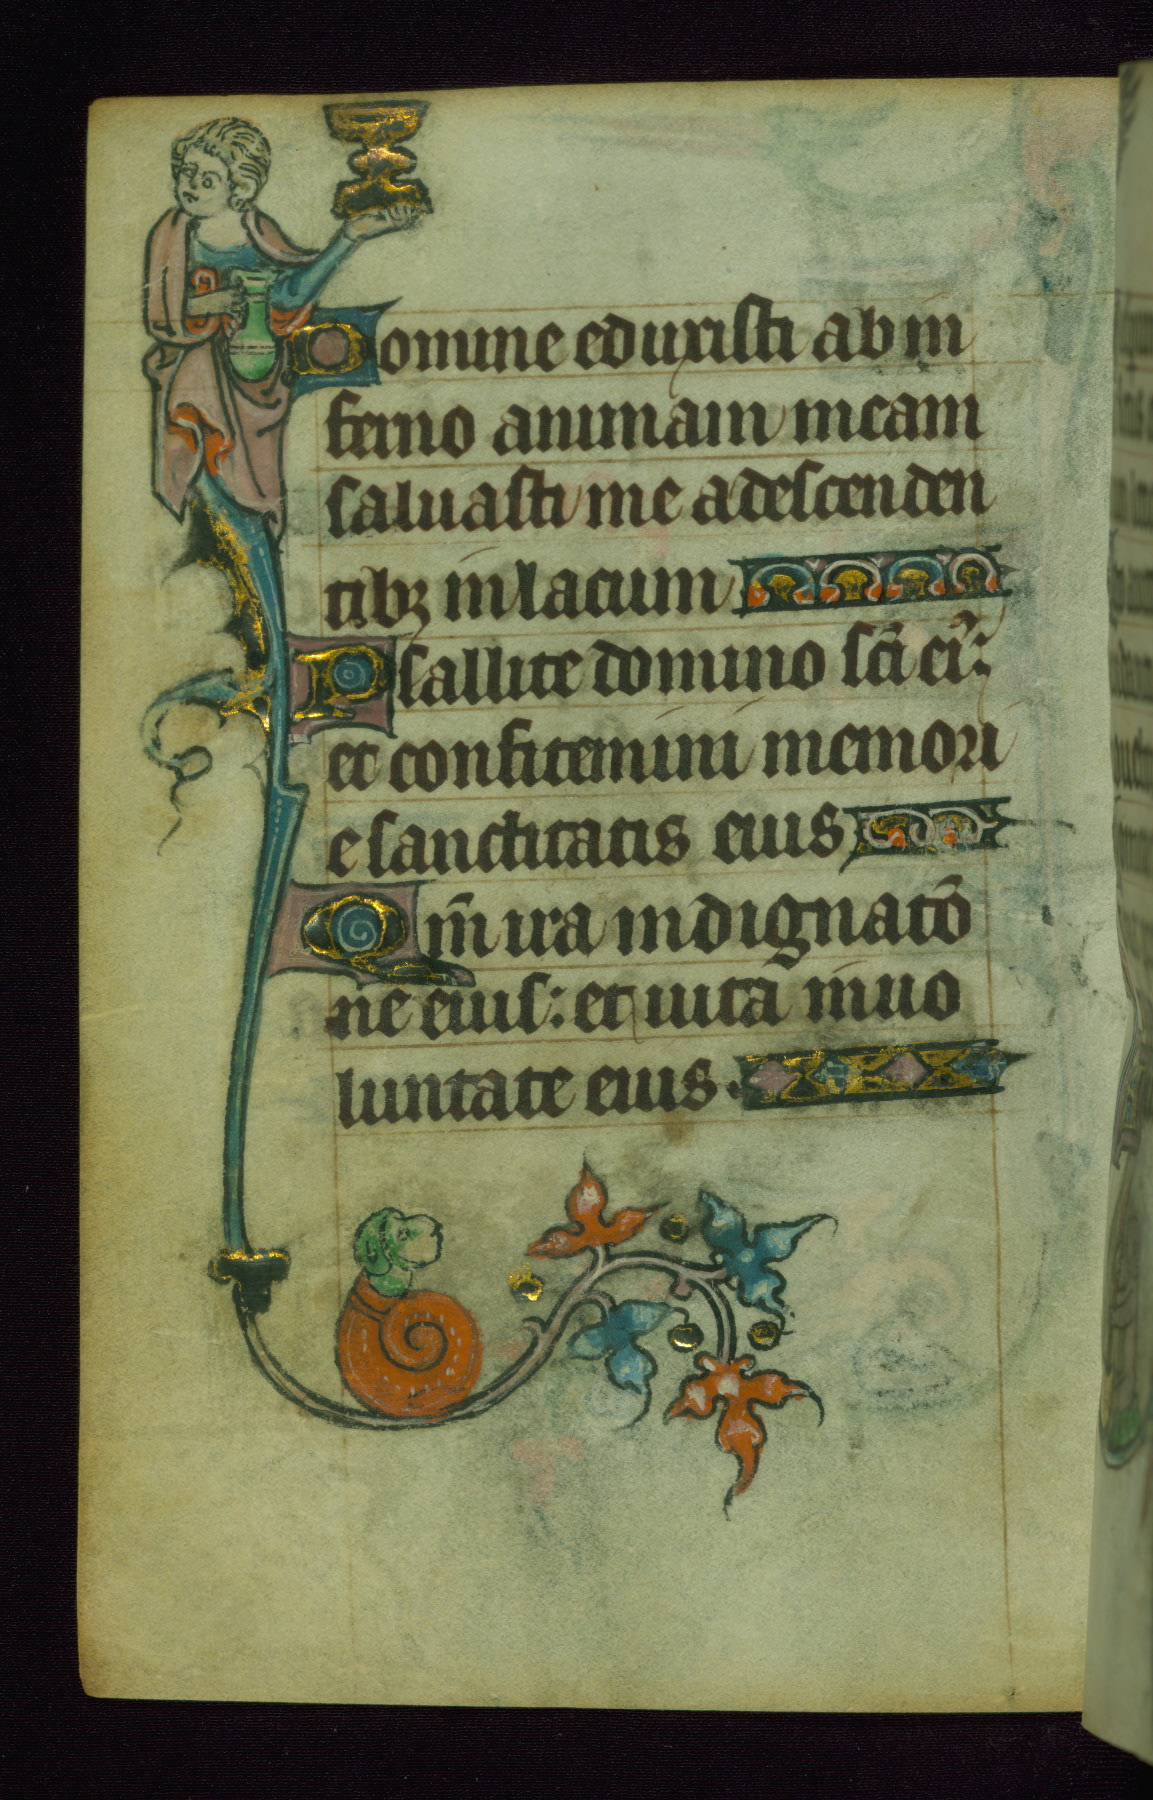 Domine eduxisti ab in
ferno animam meam
saluasti me a descenden
tibꝫ in lacum
Psallite domino sc̄i eiꝰ:
et confitemini memori
e sanctitatis eius
Qm̄ ira in dignatō
ne eius: et uita in uo
luntate eius.